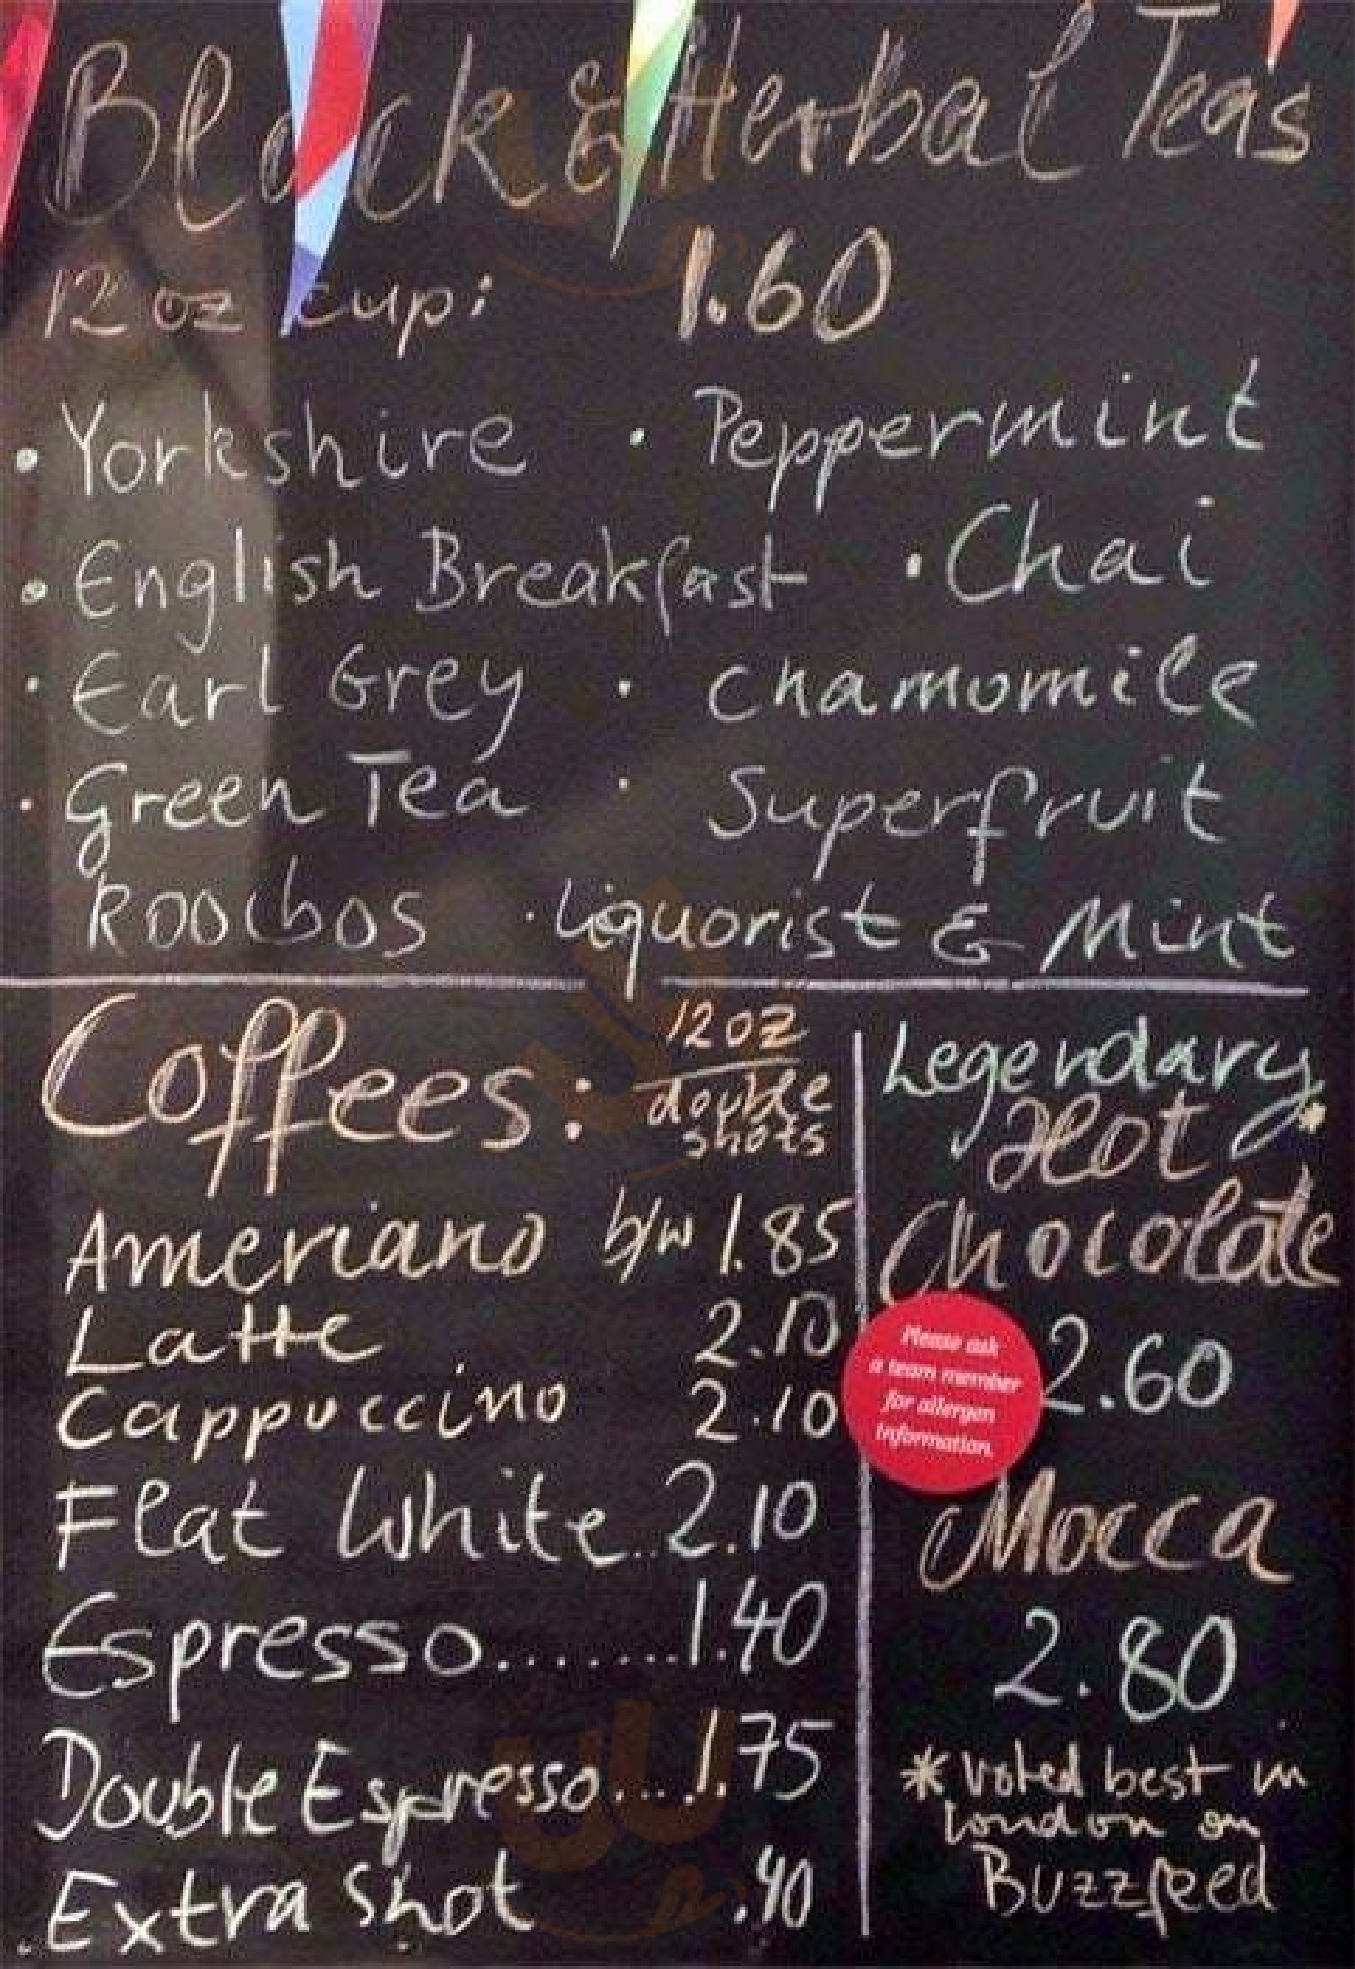 Black & Herbal Teas
12 oz cup: 1.60
• Yorkshire • Peppermint
• English Breakfast • Chai
• Earl Grey • Chamomile
• Green Tea • Superfruit
Rooibos • Liquorist & Mint
Coffees: 12oz
double
shots
Ameriano b/w 1.85
Latte 2.10
Cappuccino 2.10
Flat White.. 2.10
Espresso.......1.40
Double Espresso.....1.75
Extra Shot .40
Legendary
Hot *
Chocolate
2.60
Please ask
a team member
for allergen
information.
Mocca
2.80
* Voted best in
London on
Buzzfeed